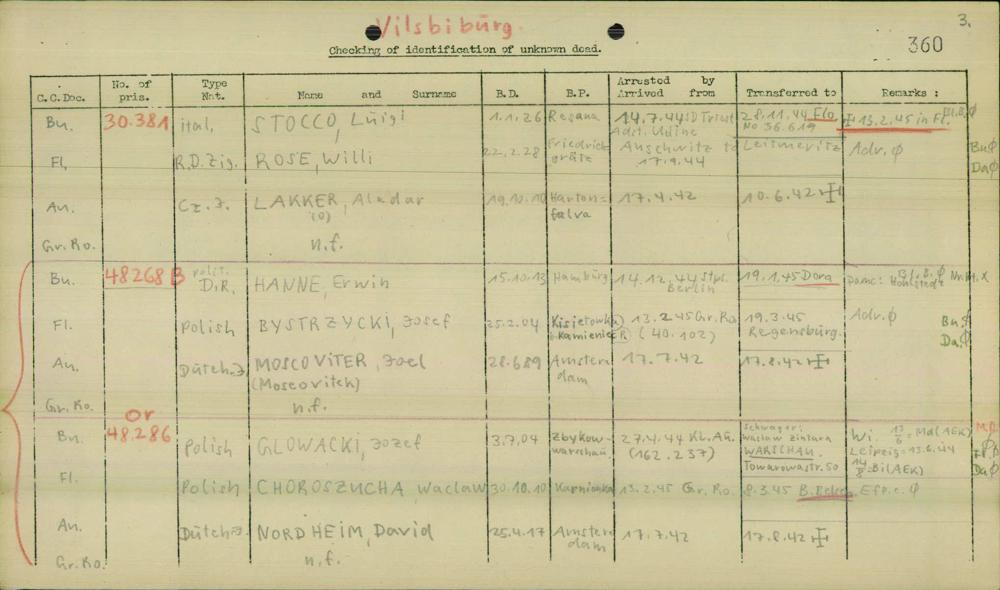 Vilsbibürg.
3.
360
Checking of identification of unknown dead.
C.C.Doc. No. of pris. Type Nat. Name and Surname B.D. B.P. Arrested by Arrived from Transferred to Remarks :
Bu. 30.381 ital, STOCCO, Lüigi 1.1.26 Resana 14.7.44 SD Triest 28.11.44 Flo ☩ 13.2.45 in Fl.
Adst. Udine No 36.619
Fl, R.D.Zig. ROSE, Willi 22.2.28 Friedrich Auschwitz to Leitmeritz Adv. Ø Bu Ø
grätz 17.9.44 Da Ø
Au. Cz.J. LAKKER, Aladar 19.10.10 Harton= 17.4.42 10.6.42 ☩
(o) falva
Gr.Ro. n.f.
Bu. 48268 B polit. D.R. HANNE, Erwin 15.10.13 Hambürg 14.12.44 Stps. 19.1.45 Dora
Berlin
Fl. Polish BYSTRZYCKI, Josef 25.2.04 Kisielowka 13.2.45 Gr.Ro 19.3.45 Adv. Ø Bu. Ø
Kamieniec (40.102) Regensbürg. Da. Ø
Au. Dütch.J. MOSCOVITER, Joel 28.6.89 Amster 17.7.42 17.8.42 ☩
(Moscovitch) dam
Gr.Ro. n.f.
or
Bu. 48.286 Polish GLOWACKI, Jozef 3.7.04 Zbykow- 27.4.44 KL.Aü. Schwager: Wi. 13/6 = Md(AEK)
warschaü (162.237) waslaw zintara Leipzig = 13.6.44
WARSCHAU. 14/8 = Bi(AEK) Da Ø
Towarowastr. 50
Fl. Polish CHOROSZUCHA, Waclaw 30.10.10 Karnionka 13.2.45 Gr.Ro. 8.3.45
Au. Dütch.J. NORDHEIM, David 25.4.17 Amster 17.7.42 17.8.42 ☩
dam
Gr.Ro. n.f.